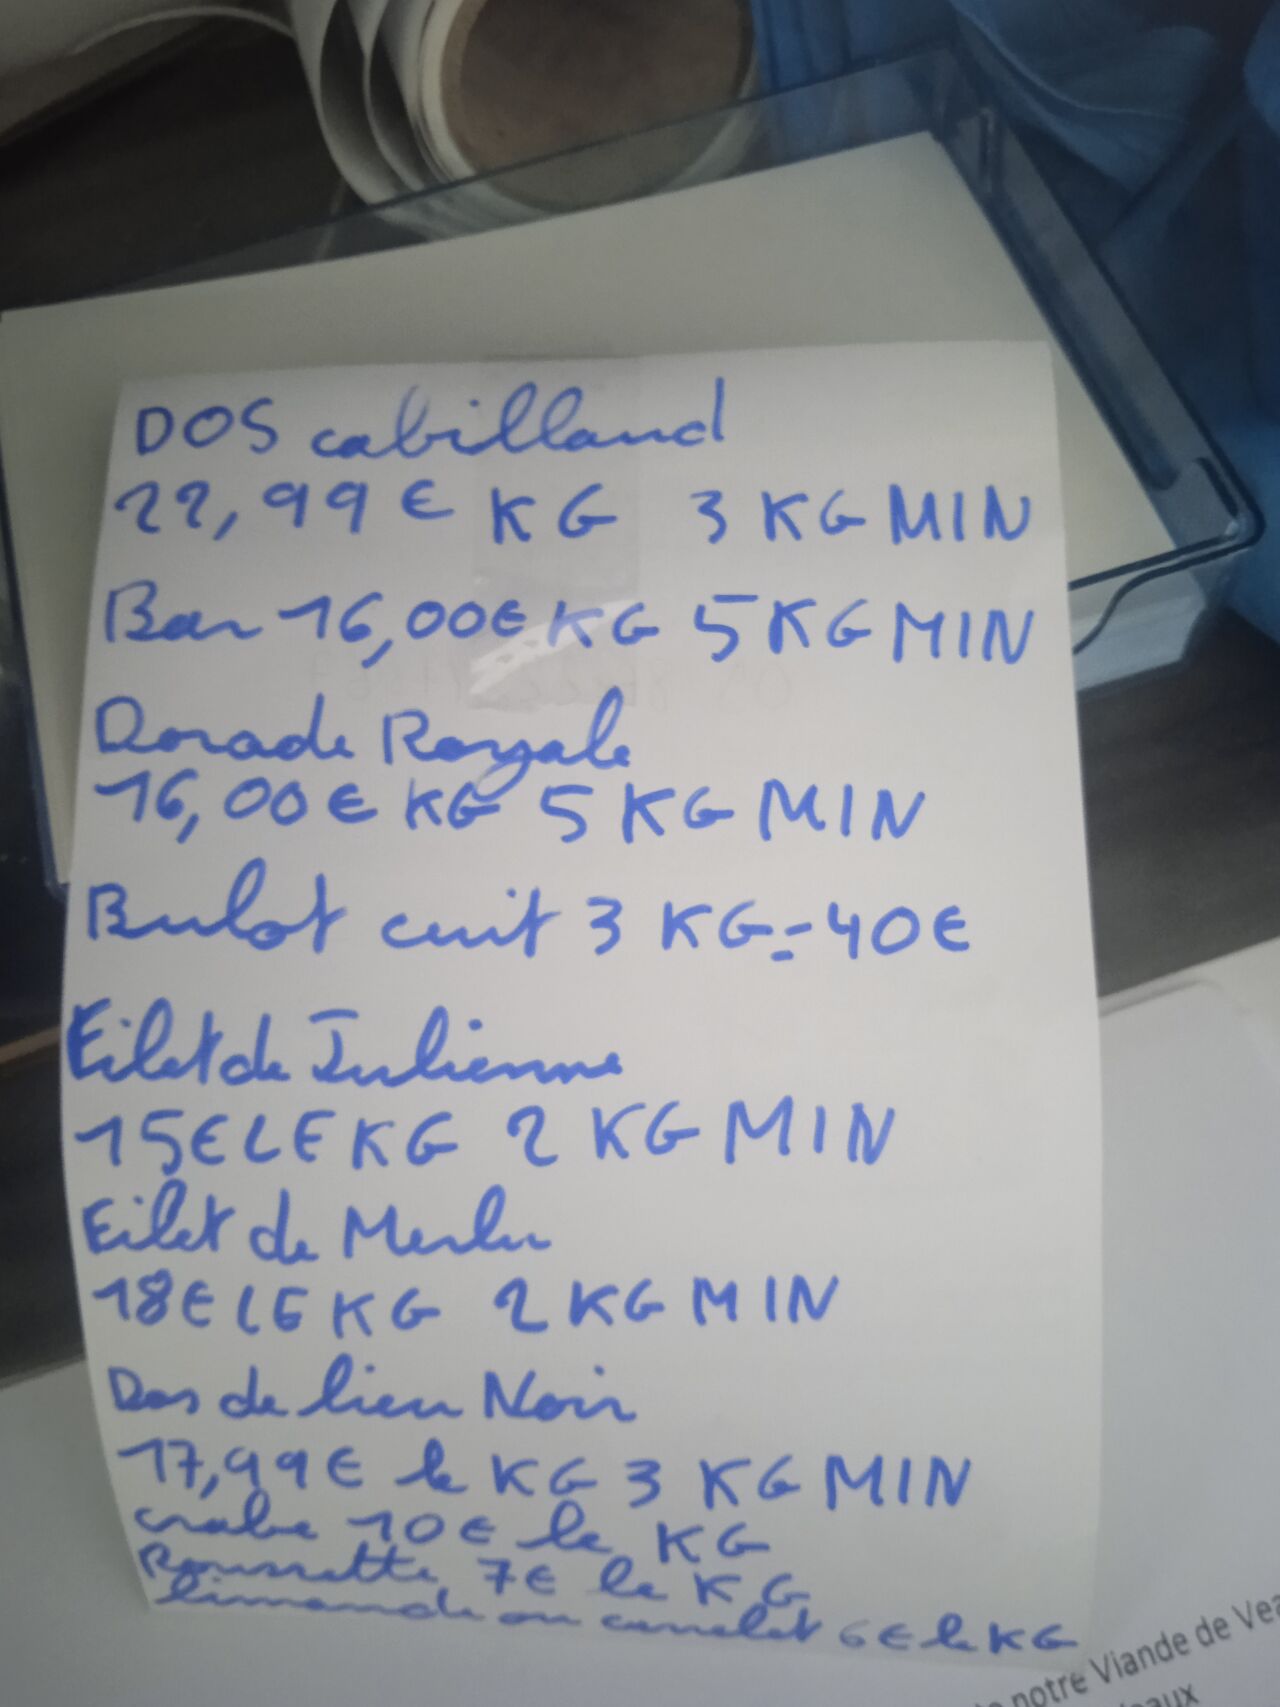 DOS cabillaud
22,99€ KG 3 KG MIN
Bar 16,00€ KG 5 KG MIN
Dorade Royale
16,00€ KG 5 KG MIN
Bulot cuit 3 KG = 40€
Filet de Julienne
15€ LE KG 2 KG MIN
Filet de Merlu
18€ LE KG 2 KG MIN
Dos de lieu Noir
17,99€ le KG 3 KG MIN
crabe 10€ le KG
Roussette 7€ le KG
limande ou carrelet 6€ le KG
notre Viande de Vea